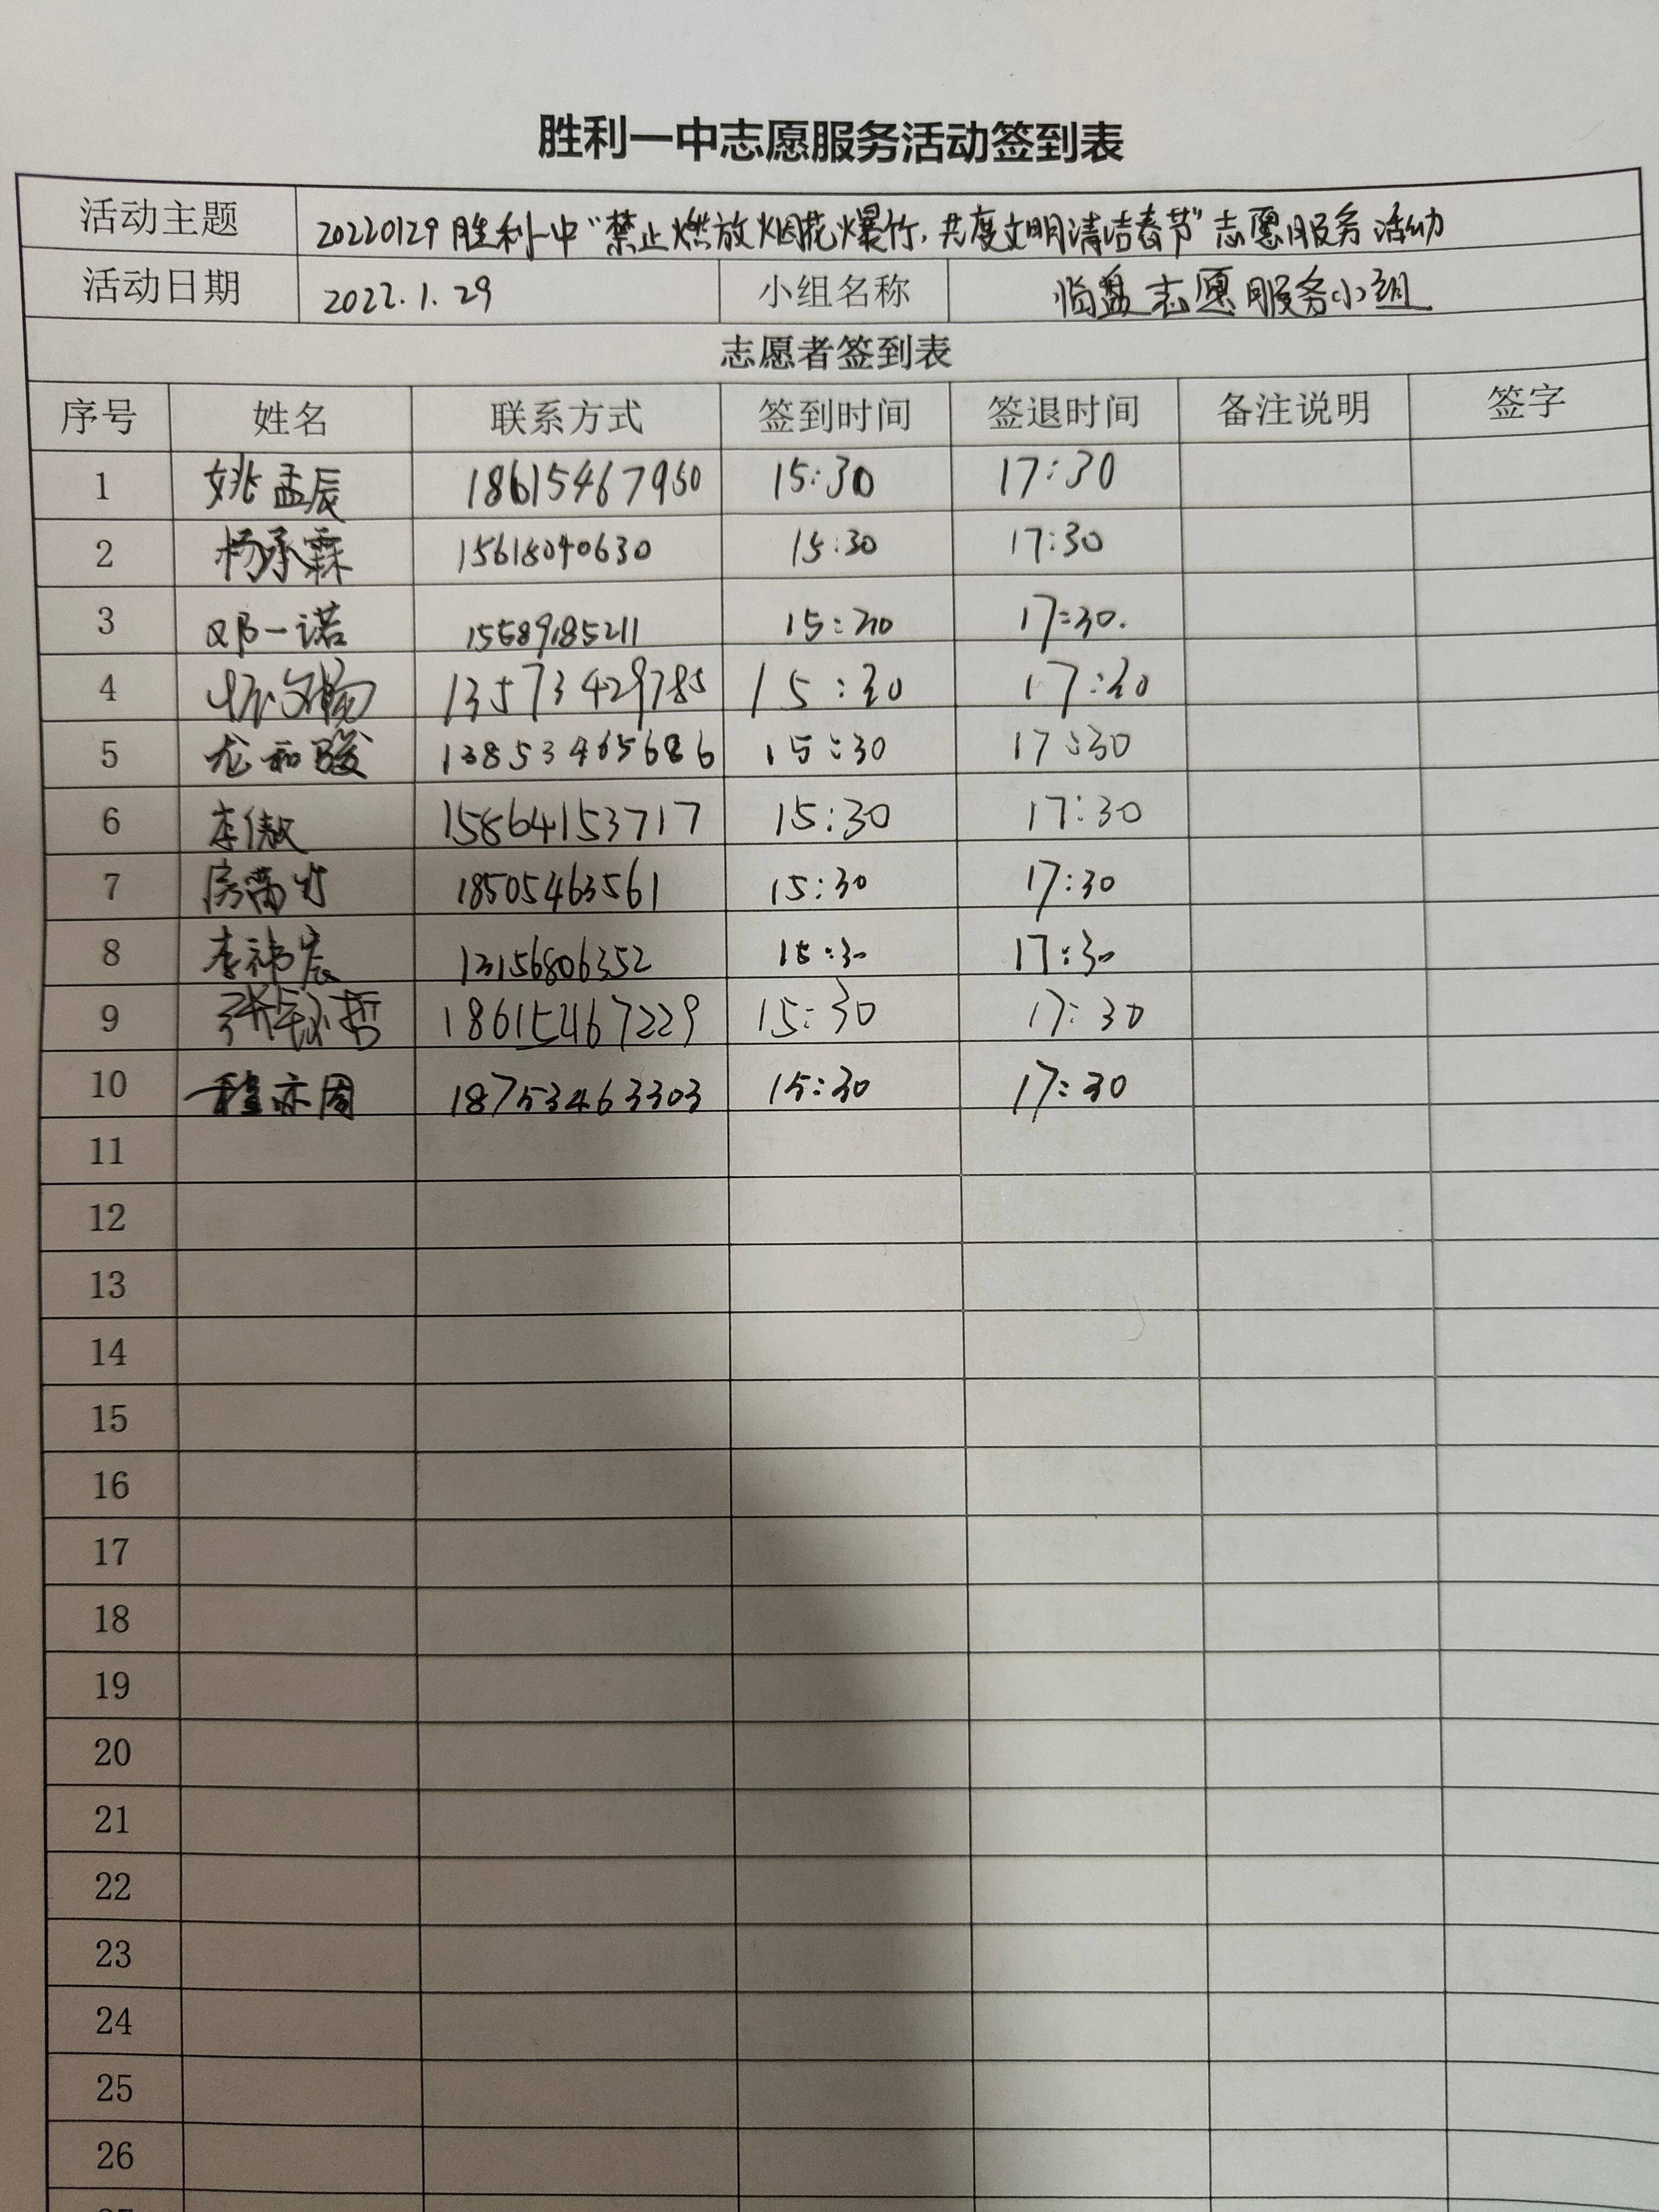 胜利一中志愿服务活动签到表
活动主题 20220129胜利一中“禁止燃放烟花爆竹,共度文明清洁春节”志愿服务活动
活动日期 2022.1.29 小组名称 临盘志愿服务小组
志愿者签到表
序号 姓名 联系方式 签到时间 签退时间 备注说明 签字
1 姚孟辰 18615467950 15:30 17:30
2 杨承霖 15618040630 15:30 17:30
3 邓一诺 15589185211 15:30 17:30.
4 13573429785 15:30 17:30
5 尤和骏 13853465686 15:30 17:30
6 李傲 15864153717 15:30 17:30
7 18505463561 15:30 17:30
8 李祎宸 13156806352 15:30 17:30
9 18615467229 15:30 17:30
10 程亦周 18753463303 15:30 17:30
11
12
13
14
15
16
17
18
19
20
21
22
23
24
25
26